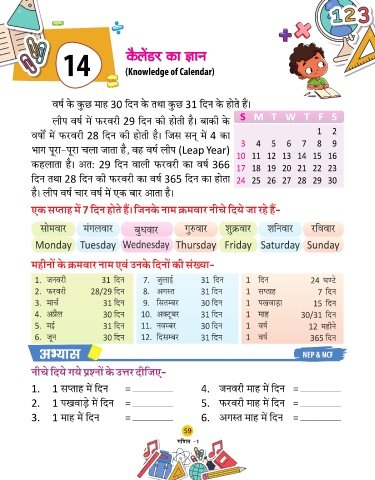 123
14
कैलेंडर का ज्ञान
(Knowledge of Calendar)
वर्ष के कुछ माह 30 दिन के तथा कुछ 31 दिन के होते हैं।
लीप वर्ष में फरवरी 29 दिन की होती है। बाकी के
वर्षों में फरवरी 28 दिन की होती है। जिस सन् में 4 का
भाग पूरा-पूरा चला जाता है, वह वर्ष लीप (Leap Year)
कहलाता है। अतः 29 दिन वाली फरवरी का वर्ष 366
दिन तथा 28 दिन की फरवरी का वर्ष 365 दिन का होता
है। लीप वर्ष चार वर्ष में एक बार आता है।
S M T W T F S
1 2
3 4 5 6 7 8 9
10 11 12 13 14 15 16
17 18 19 20 21 22 23
24 25 26 27 28 29 30
एक सप्ताह में 7 दिन होते हैं। जिनके नाम क्रमवार नीचे दिये जा रहे हैं-
सोमवार मंगलवार बुधवार गुरुवार शुक्रवार शनिवार रविवार
Monday Tuesday Wednesday Thursday Friday Saturday Sunday
महीनों के क्रमवार नाम एवं उनके दिनों की संख्या-
1. जनवरी 31 दिन 7. जुलाई 31 दिन 1 दिन 24 घण्टे
2. फरवरी 28/29 दिन 8. अगस्त 31 दिन 1 सप्ताह 7 दिन
3. मार्च 31 दिन 9. सितम्बर 30 दिन 1 पखवाड़ा 15 दिन
4. अप्रैल 30 दिन 10. अक्टूबर 31 दिन 1 माह 30/31 दिन
5. मई 31 दिन 11. नवम्बर 30 दिन 1 वर्ष 12 महीने
6. जून 30 दिन 12. दिसम्बर 31 दिन 1 वर्ष 365 दिन
अभ्यास NEP & NCF
नीचे दिये गये प्रश्नों के उत्तर दीजिए-
1. 1 सप्ताह में दिन = ________ 4. जनवरी माह में दिन = ________
2. 1 पखवाड़े में दिन = ________ 5. फरवरी माह में दिन = ________
3. 1 माह में दिन = ________ 6. अगस्त माह में दिन = ________
59
गणित -1